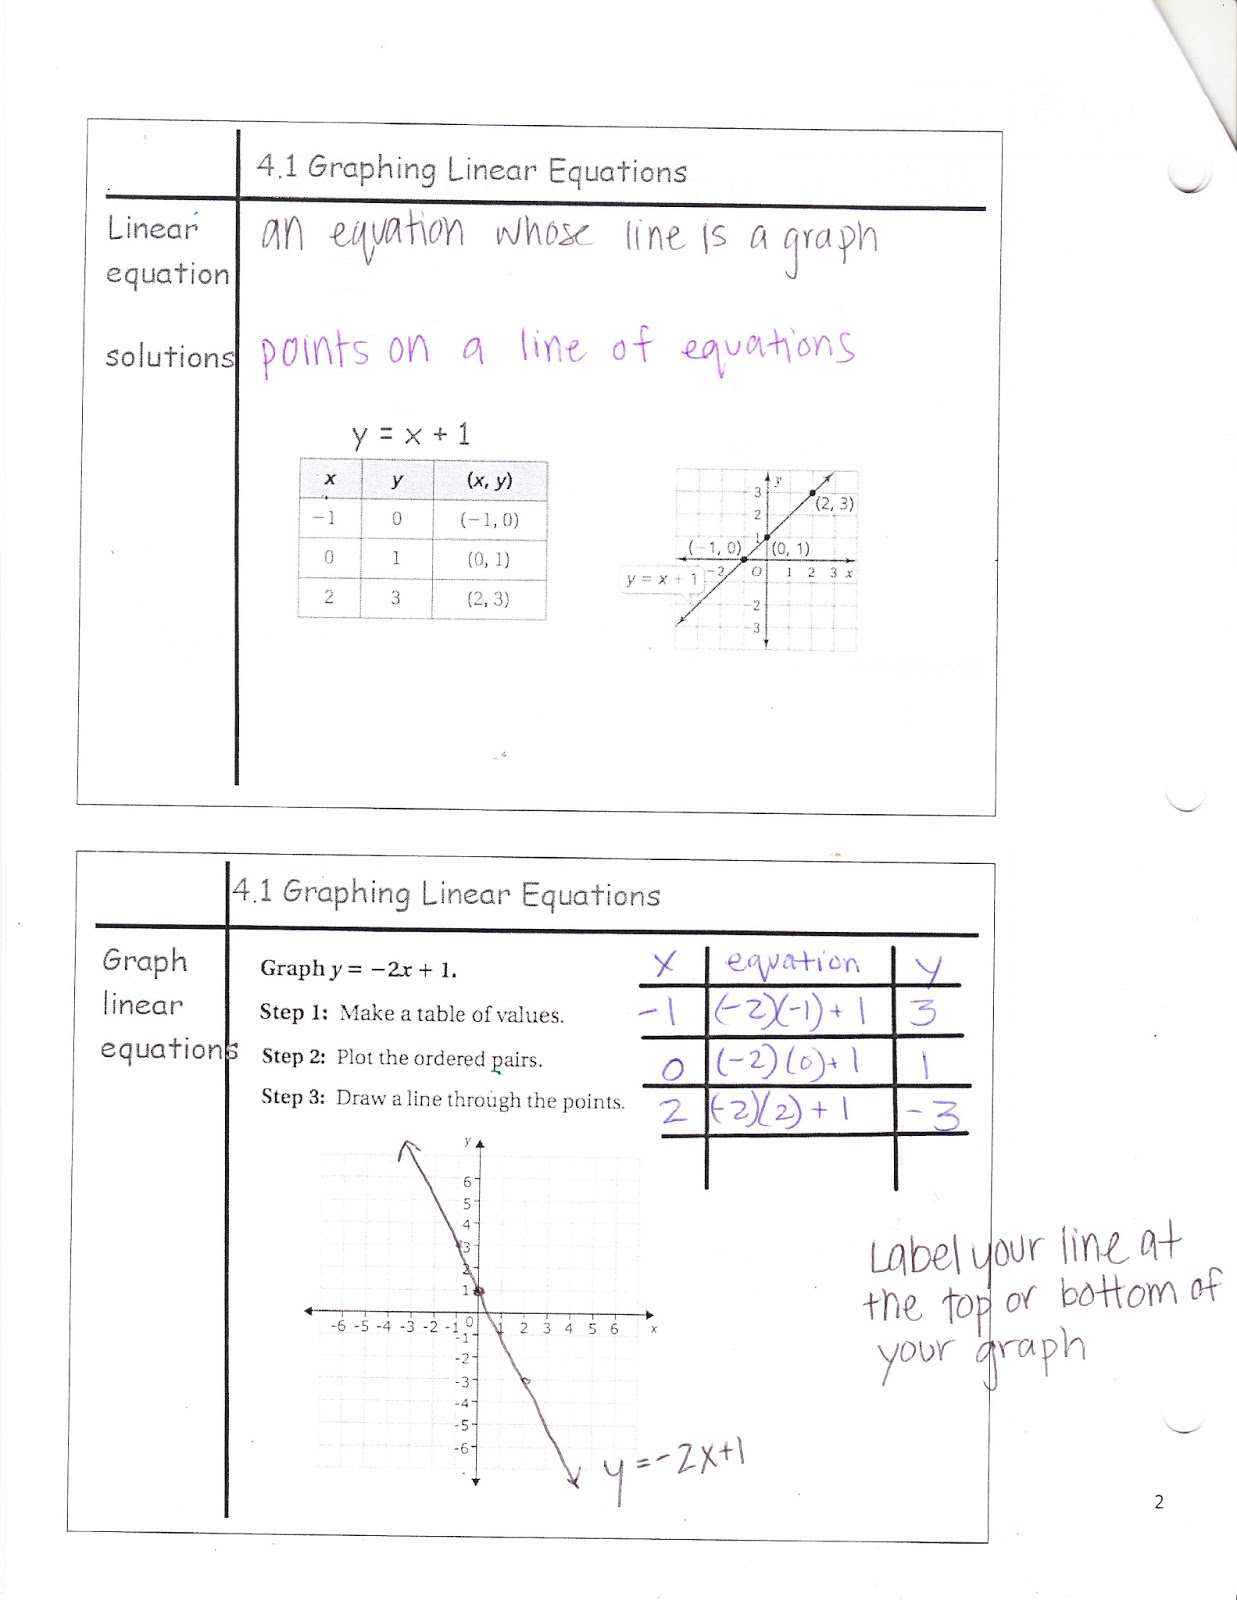 4.1 Graphing Linear Equations
Linear
equation
an equation whose line is a graph
solutions
points on a line of equations
y = x + 1
x y (x, y)
−1 0 (−1, 0)
0 1 (0, 1)
2 3 (2, 3)
y
3
(2, 3)
2
1
(−1, 0) (0, 1)
−2 O 1 2 3 x
y = x + 1
−2
−3
4.1 Graphing Linear Equations
Graph
linear
equations
Graph y = −2x + 1.
Step 1: Make a table of values.
Step 2: Plot the ordered pairs.
Step 3: Draw a line through the points.
x equation y
-1 (-2)(-1)+1 3
0 (-2)(0)+1 1
2 (-2)(2)+1 -3
y
6
5
4
3
2
1
-6 -5 -4 -3 -2 -1 0 1 2 3 4 5 6 x
-1
-2
-3
-4
-5
-6
y=-2x+1
Label your line at
the top or bottom of
your graph
2